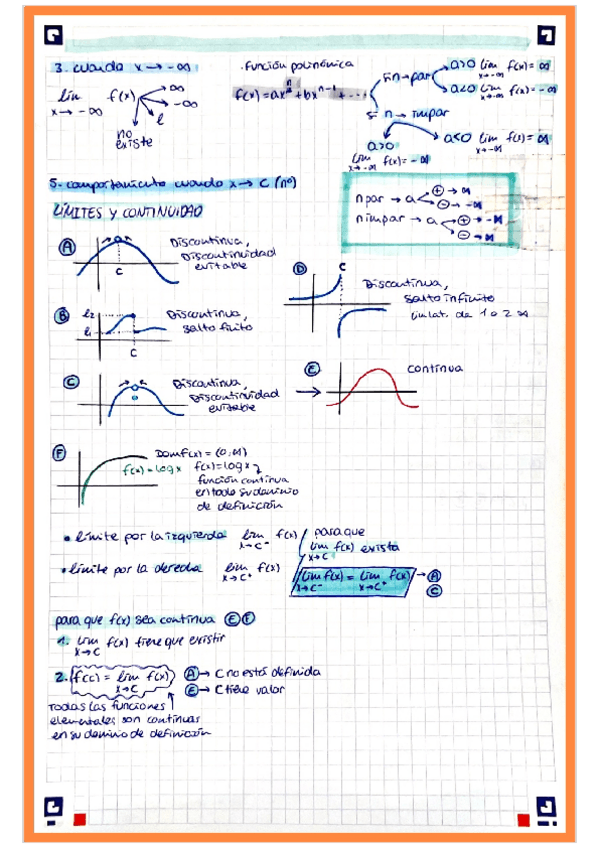 3. cuando x → -∞
lim f(x) ∞
x → -∞ -∞
l
no existe
. función polinómica
f(x) = axⁿ + bxⁿ⁻¹ + ...
si n → par a>0 lim f(x) = ∞
x→-∞
a<0 lim f(x) = -∞
x→-∞
si n → impar
a>0
lim f(x) = -∞
x→-∞
a<0 lim f(x) = ∞
x→-∞
n par → a + → ∞
- → -∞
n impar → a + → -∞
- → ∞
5. comportamiento cuando x → c (nº)
LÍMITES Y CONTINUIDAD
A Discontinua,
Discontinuidad
evitable
C
B l2 Discontinua,
l1 salto finito
C
C Discontinua,
Discontinuidad
evitable
D C
Discontinua,
salto infinito
lim lat. da 1 o 2 ∞
E continua
F Dom f(x) = (0,∞)
f(x) = log x f(x) = log x
función continua
en todo su dominio
de definición
• límite por la izquierda lim f(x)
x→c⁻
• límite por la derecha lim f(x)
x→c⁺
para que
lim f(x) exista
x→c
lim f(x) = lim f(x) → A
x→c⁻ x→c⁺ C
para que f(x) sea continua E F
1. lim f(x) tiene que existir
x→c
2. f(c) = lim f(x) A → C no está definida
x→c E → C tiene valor
Todas las funciones
elementales son continuas
en su dominio de definición